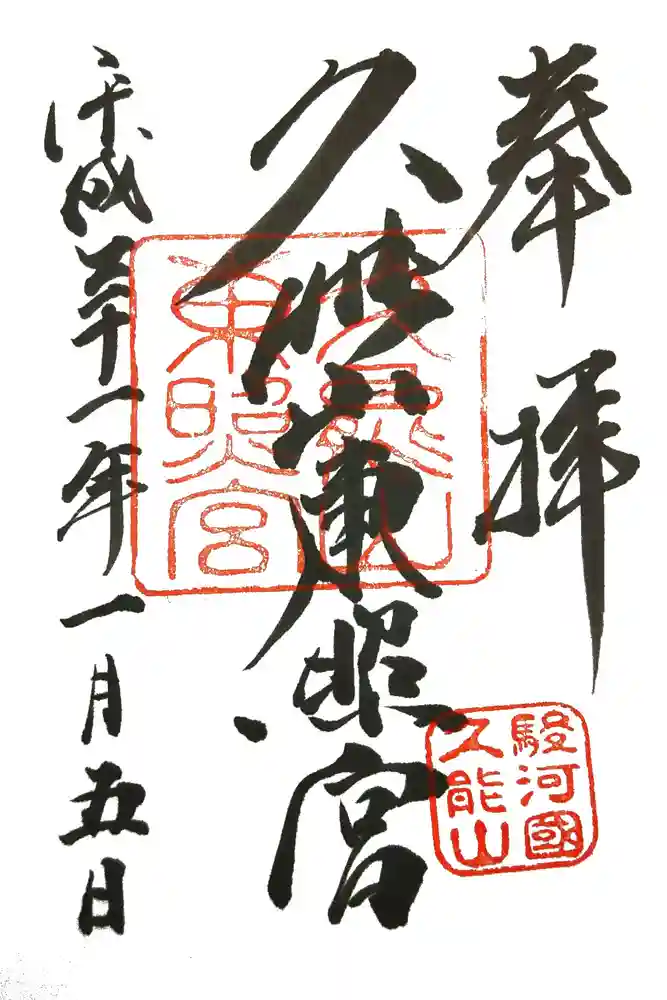 奉拝
久能山東照宮
久能山
東照宮
駿河國
久能山
平成三十一年一月五日